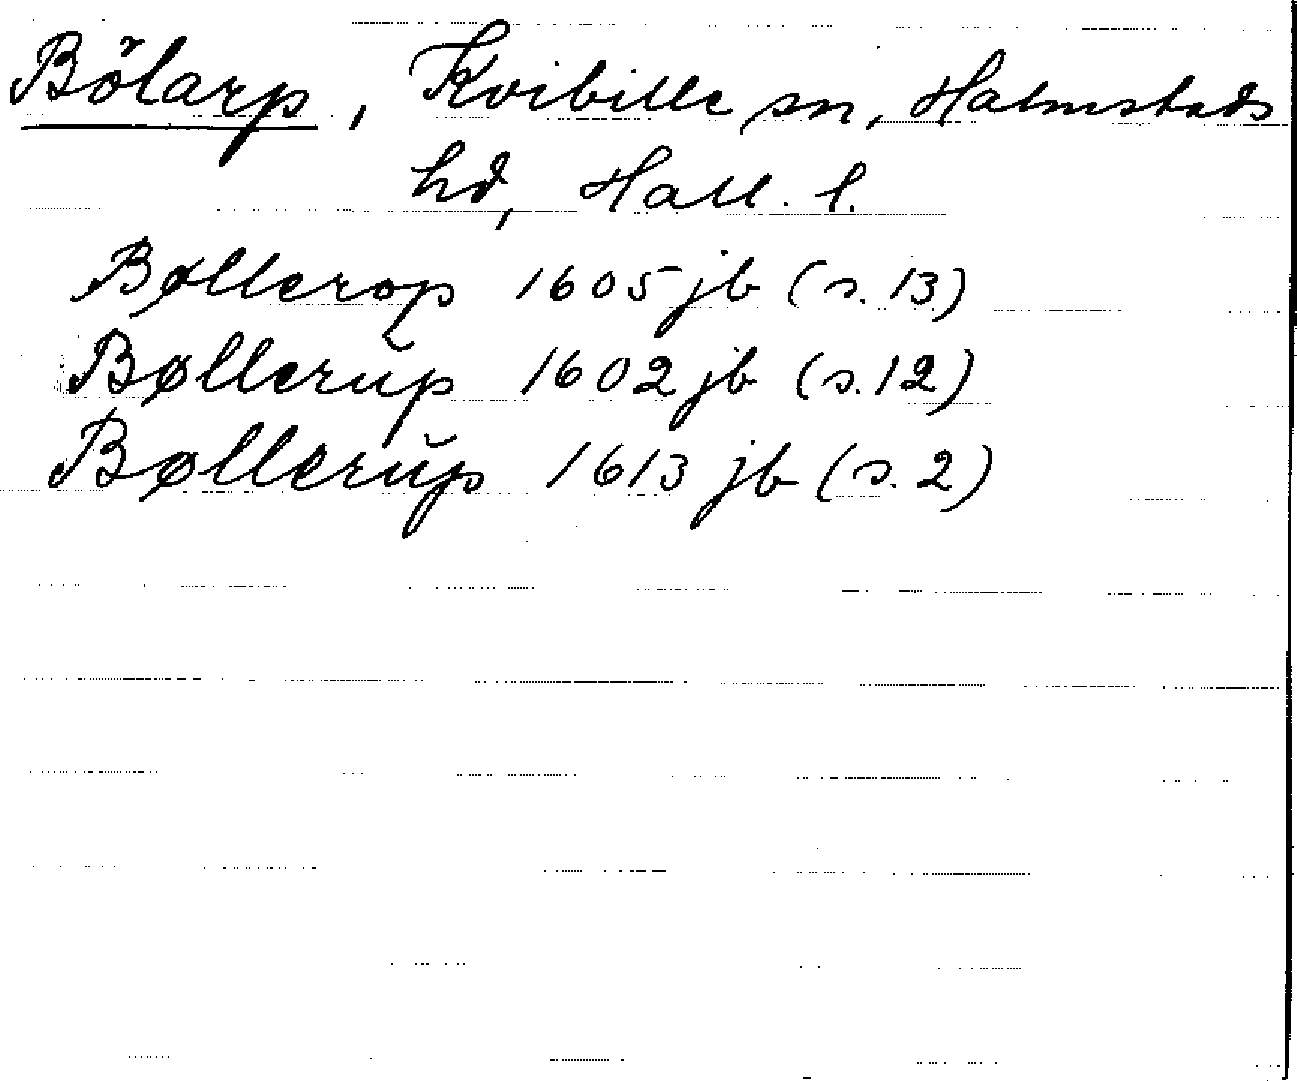 Bölarp, Kvibille sn, Halmstads
hd, Hall. l.
Bøllerop 1605 jb (s. 13)
Bøllerŭp 1602 jb (s. 12)
Bøllerŭp 1613 jb (s. 2)